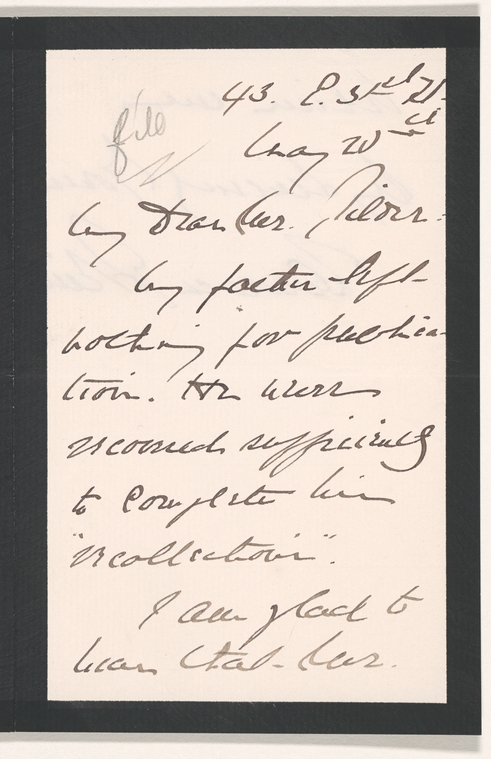 file
43. E. 31st St.
May 20th
My Dear Mr. Gilder:
My father left
nothing for publica-
tion. He never
recovered sufficiently
to complete his
"recollections".
I am glad to
hear that Mr.